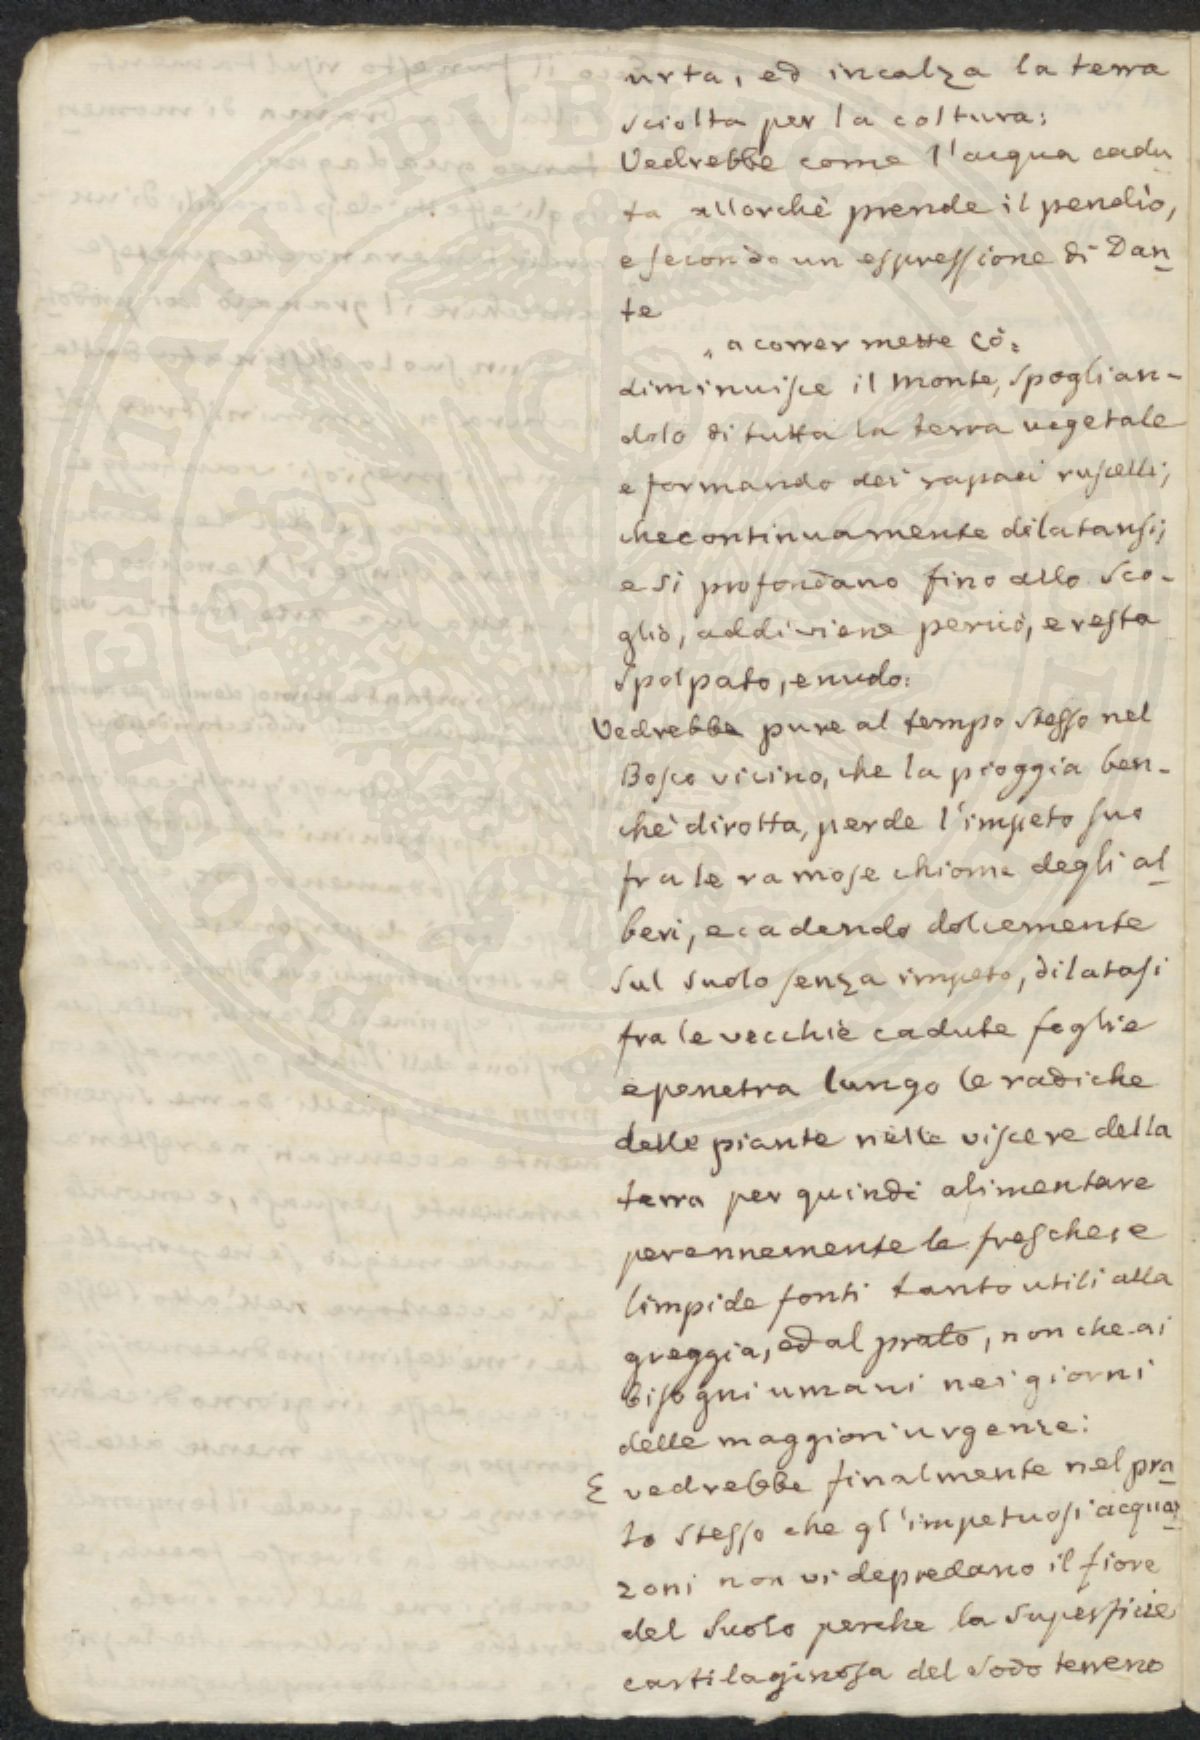 urta, ed incalza la terra
sciolta per la coltura:
Vedrebbe come l'acqua cadu
ta allorchè prende il pendìo,
e secondo un espressione di Dan_
te
„ a correr mette cò:
diminuisce il monte, spoglian-
dolo di tutta la terra vegetale
e formando dei rapaci ruscelli;
che continuamente dilatansi;
e si profondano fino allo sco-
glio, addiviene perciò, e resta
spolpato, e nudo:
Vedrebbe pure al tempo stesso nel
Bosco vicino, che la pioggia ben-
chè dirotta, perde l'impeto suo
fra le ramose chiome degli al_
beri, e cadendo dolcemente
sul suolo senza impeto, dilatasi
fra le vecchie cadute foglie
e penetra lungo le radiche
delle piante nelle viscere della
terra per quindi alimentare
perennemente le fresche, e
limpide fonti tanto utili alla
greggia, ed al prato, non che ai
bisogni umani nei giorni
delle maggiori urgenze:
E vedrebbe finalmente nel pra_
to stesso che gl'impetuosi acquaz_
zoni non vi depredano il fiore
del suolo perche la superficie
cartilaginosa del sodo terreno